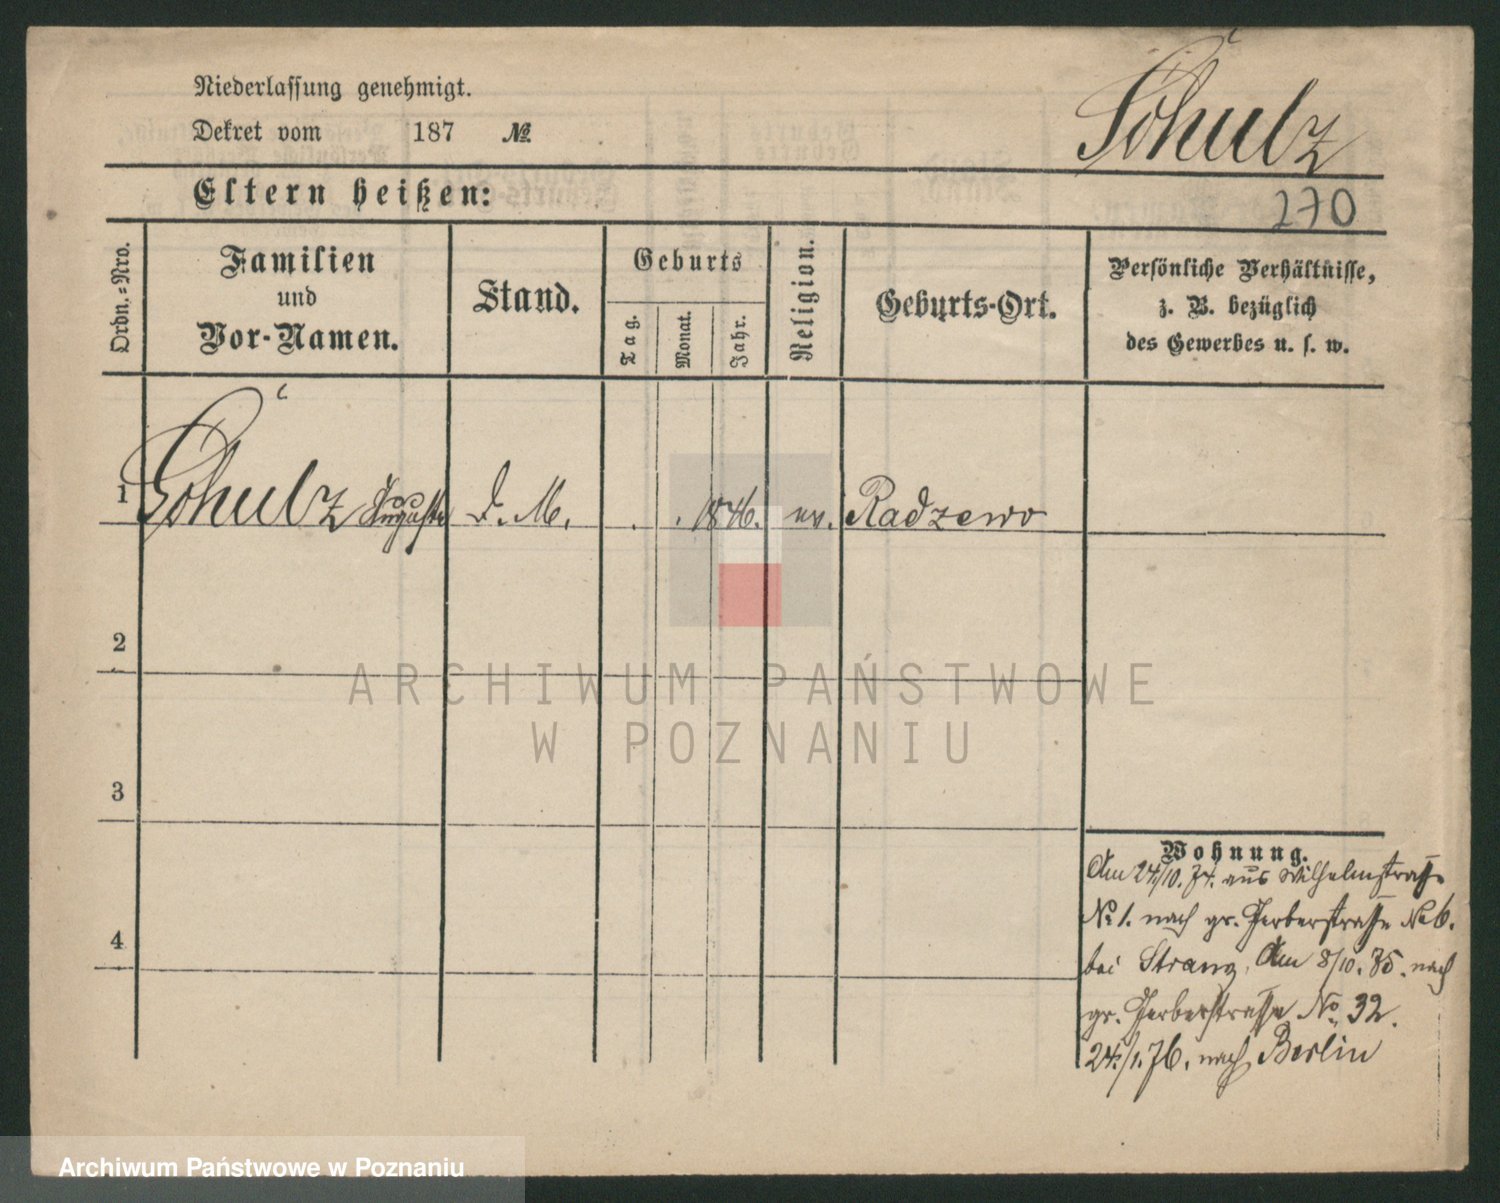 Niederlassung genehmigt.
Schulz
Dekret vom 187 №
Eltern heißen:
270
Ordn.-Nro.
Familien
und
Vor-Namen.
Stand.
Geburts
Tag.
Monat.
Jahr.
Religion.
Geburts-Ort.
Persönliche Verhältnisse,
z. B. bezüglich
des Gewerbes u. s. w.
1 Schulz Auguste D. M. . . 1846. ev. Radzewo
2
3
4
Wohnung.
Am 24/10. 74. aus Wilhelmstraße
No 1. nach gr. Gerberstraße No 6.
bei Strang. Am 8/10. 75. nach
gr. Gerberstraße No 32.
24/1. 76. nach Berlin
ARCHIWUM PAŃSTWOWE
W POZNANIU
Archiwum Państwowe w Poznaniu